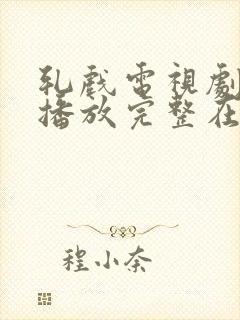 乳戲電視劇
播放完整在
程小奈